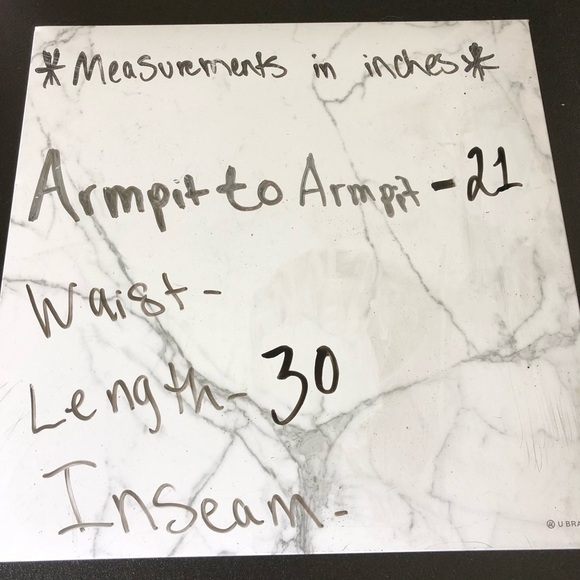 *Measurements in inches*
Armpit to Armpit - 21
Waist -
Length - 30
Inseam -